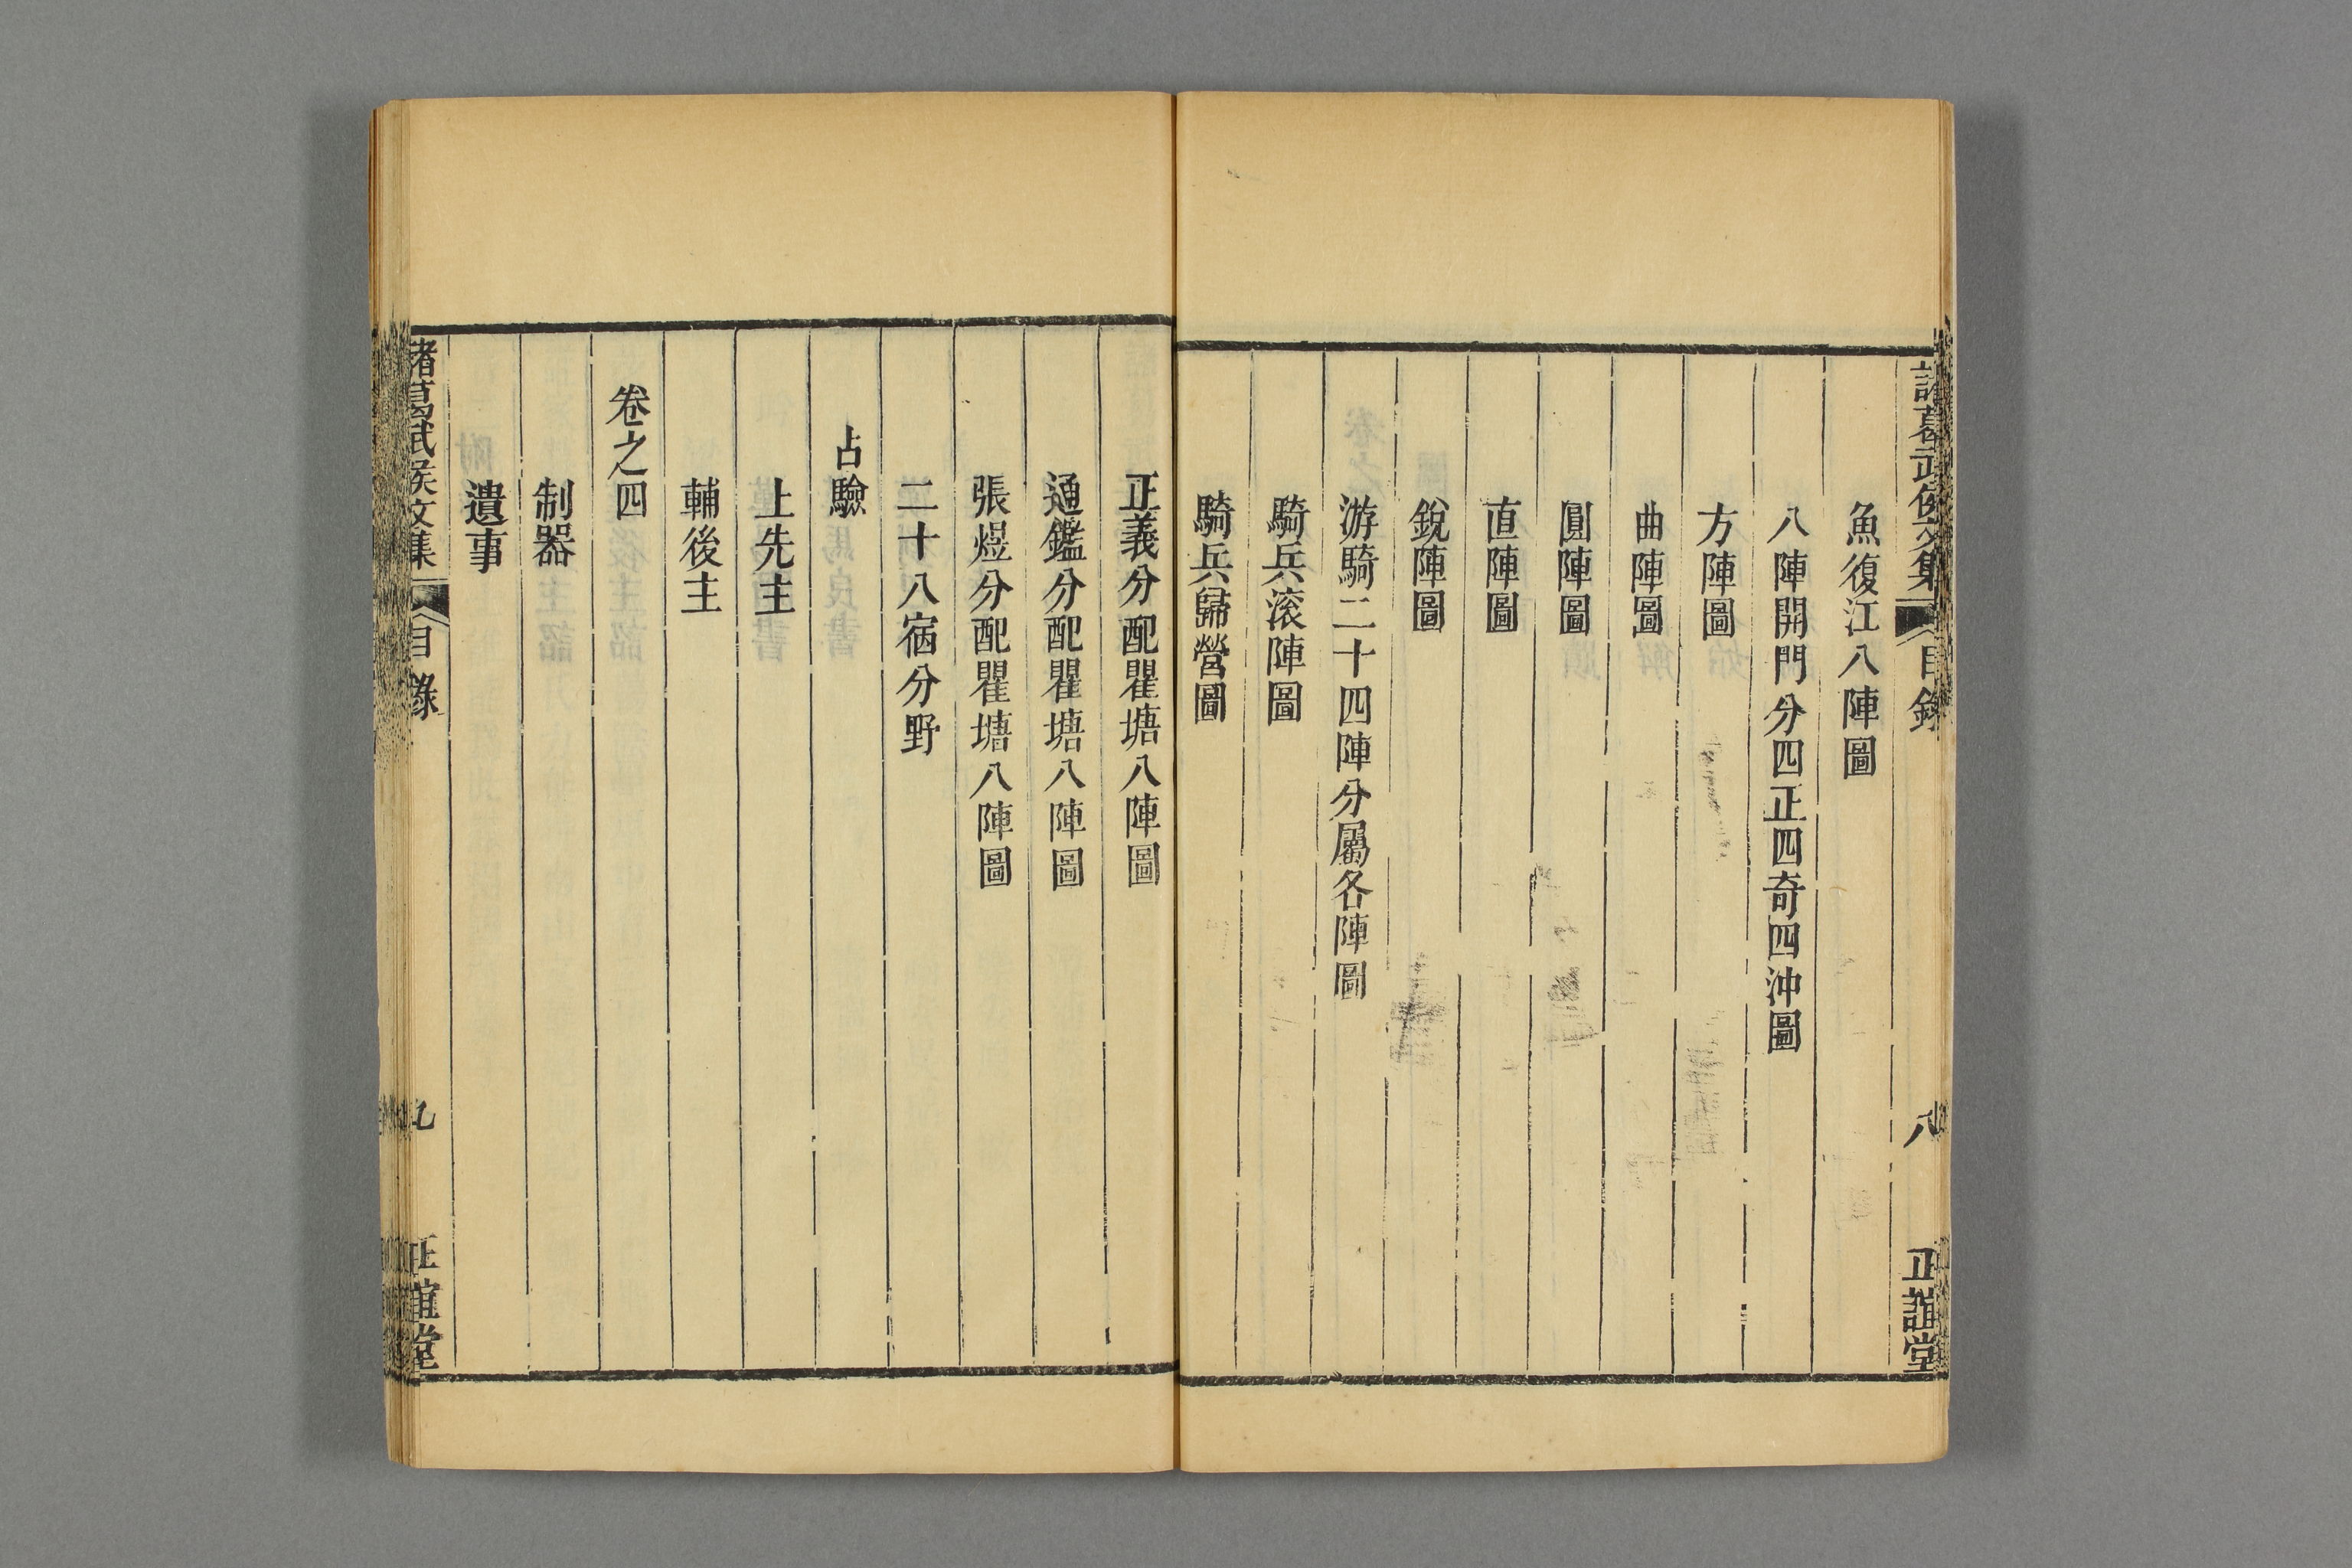 諸葛武侯文集
目錄
八
正誼堂
魚復江八陣圖
八陣開門分四正四奇四沖圖
方陣圖
曲陣圖
圓陣圖
直陣圖
銳陣圖
游騎二十四陣分屬各陣圖
騎兵滚陣圖
騎兵歸營圖
正義分配瞿塘八陣圖
通鑑分配瞿塘八陣圖
張熤分配瞿塘八陣圖
二十八宿分野
占驗
上先主
輔後主
卷之四
制器
遺事
諸葛武侯文集
目錄
九
正誼堂